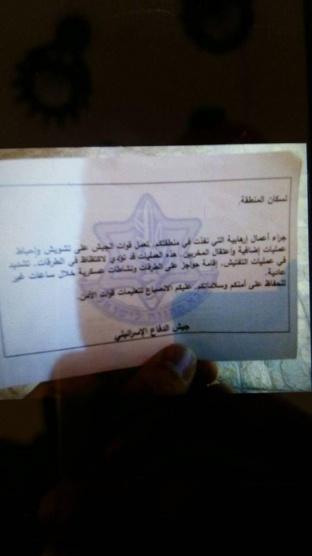 لسكان المنطقة,
جراء أعمال إرهابية التي نفذت في منطقتكم, تعمل قوات الجيش على تشويش وإحباط
عمليات إضافية وإعتقال المخربين. هذه العمليات قد تؤدي لاكتظاظ في الطرقات.. تشديد
في عمليات التفتيش, إقامة حواجز على الطرقات ونشاطات عسكرية خلال ساعات غير
عادية.
للحفاظ على أمنكم وسلامتكم عليكم الانصياع لتعليمات قوات الأمن.
جيش الدفاع الإسرائيلي